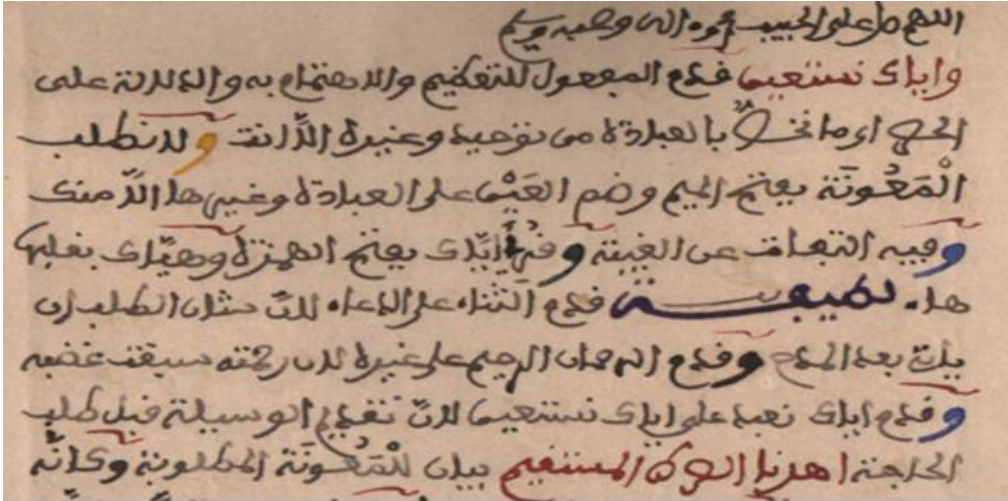 اللهم صل على الحبيب محمد واله وصحبه وسلم
واياك نستعين قدم المفعول للتعظيم والاهتمام به والدلالة على
الحصر اي ما نخص بالعبادة من توحيد وغيره الا انت ولا نطلب
الْمَعُونَة بفتح الميم وضم العَيْن على العبادة وغيرها الا منك
وفيه التفات عن الغيبة وقرئ أيّاك بفتح الهمزة وهيّاك بقلبها
هاء لطيفة قدم الثناء على الدعاء لانّ شان الطلب ان
يات بعد المدح وقدم الرحمان الرحيم على غيره لان رحمته سبقت غضبه
وقدم اياك نعبد على اياك نستعين لانّ تقديم الوسيلة قبل طلب
الحاجة اهدنا الصراط المستقيم بيان للْمَعُونَة المطلوبة وكانّه